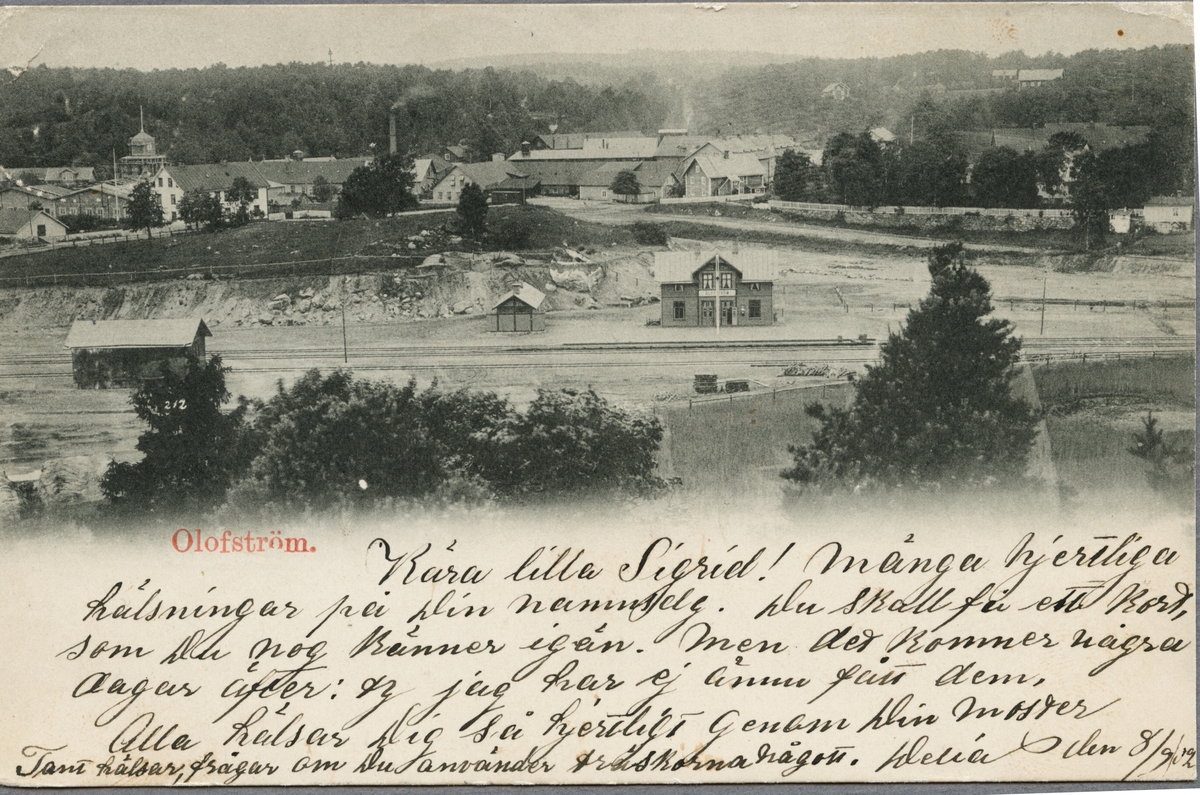 212
Olofström.
Kära lilla Sigrid! Många hjertliga
hälsningar på Din namnsdg. Du skall få ett kort,
som Du nog känner igän. Men det kommer några
dagar äfter: ty jag har ej ännu fått dem.
Alla hälsar Dig så hjertligt genom Din moster
Tant hälsar, frågar om Du använder träskorna något. Delia den 8/9 02